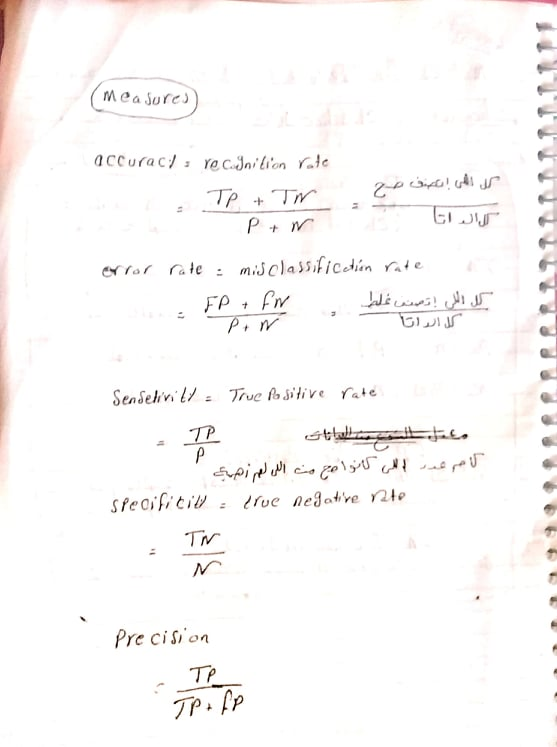 Measures
accuracy = recognition rate
= TP + TN / P + N = كل اللي إتصنف صح / كل الداتا
error rate = misclassification rate
= FP + FN / P + N = كل اللي إتصنف غلط / كل الداتا
Sensetivity = True Positive rate
= TP / P
كام عدد اللي كانوا صح من اللي
specificity = true negative rate
= TN / N
Precision
= TP / TP + FP